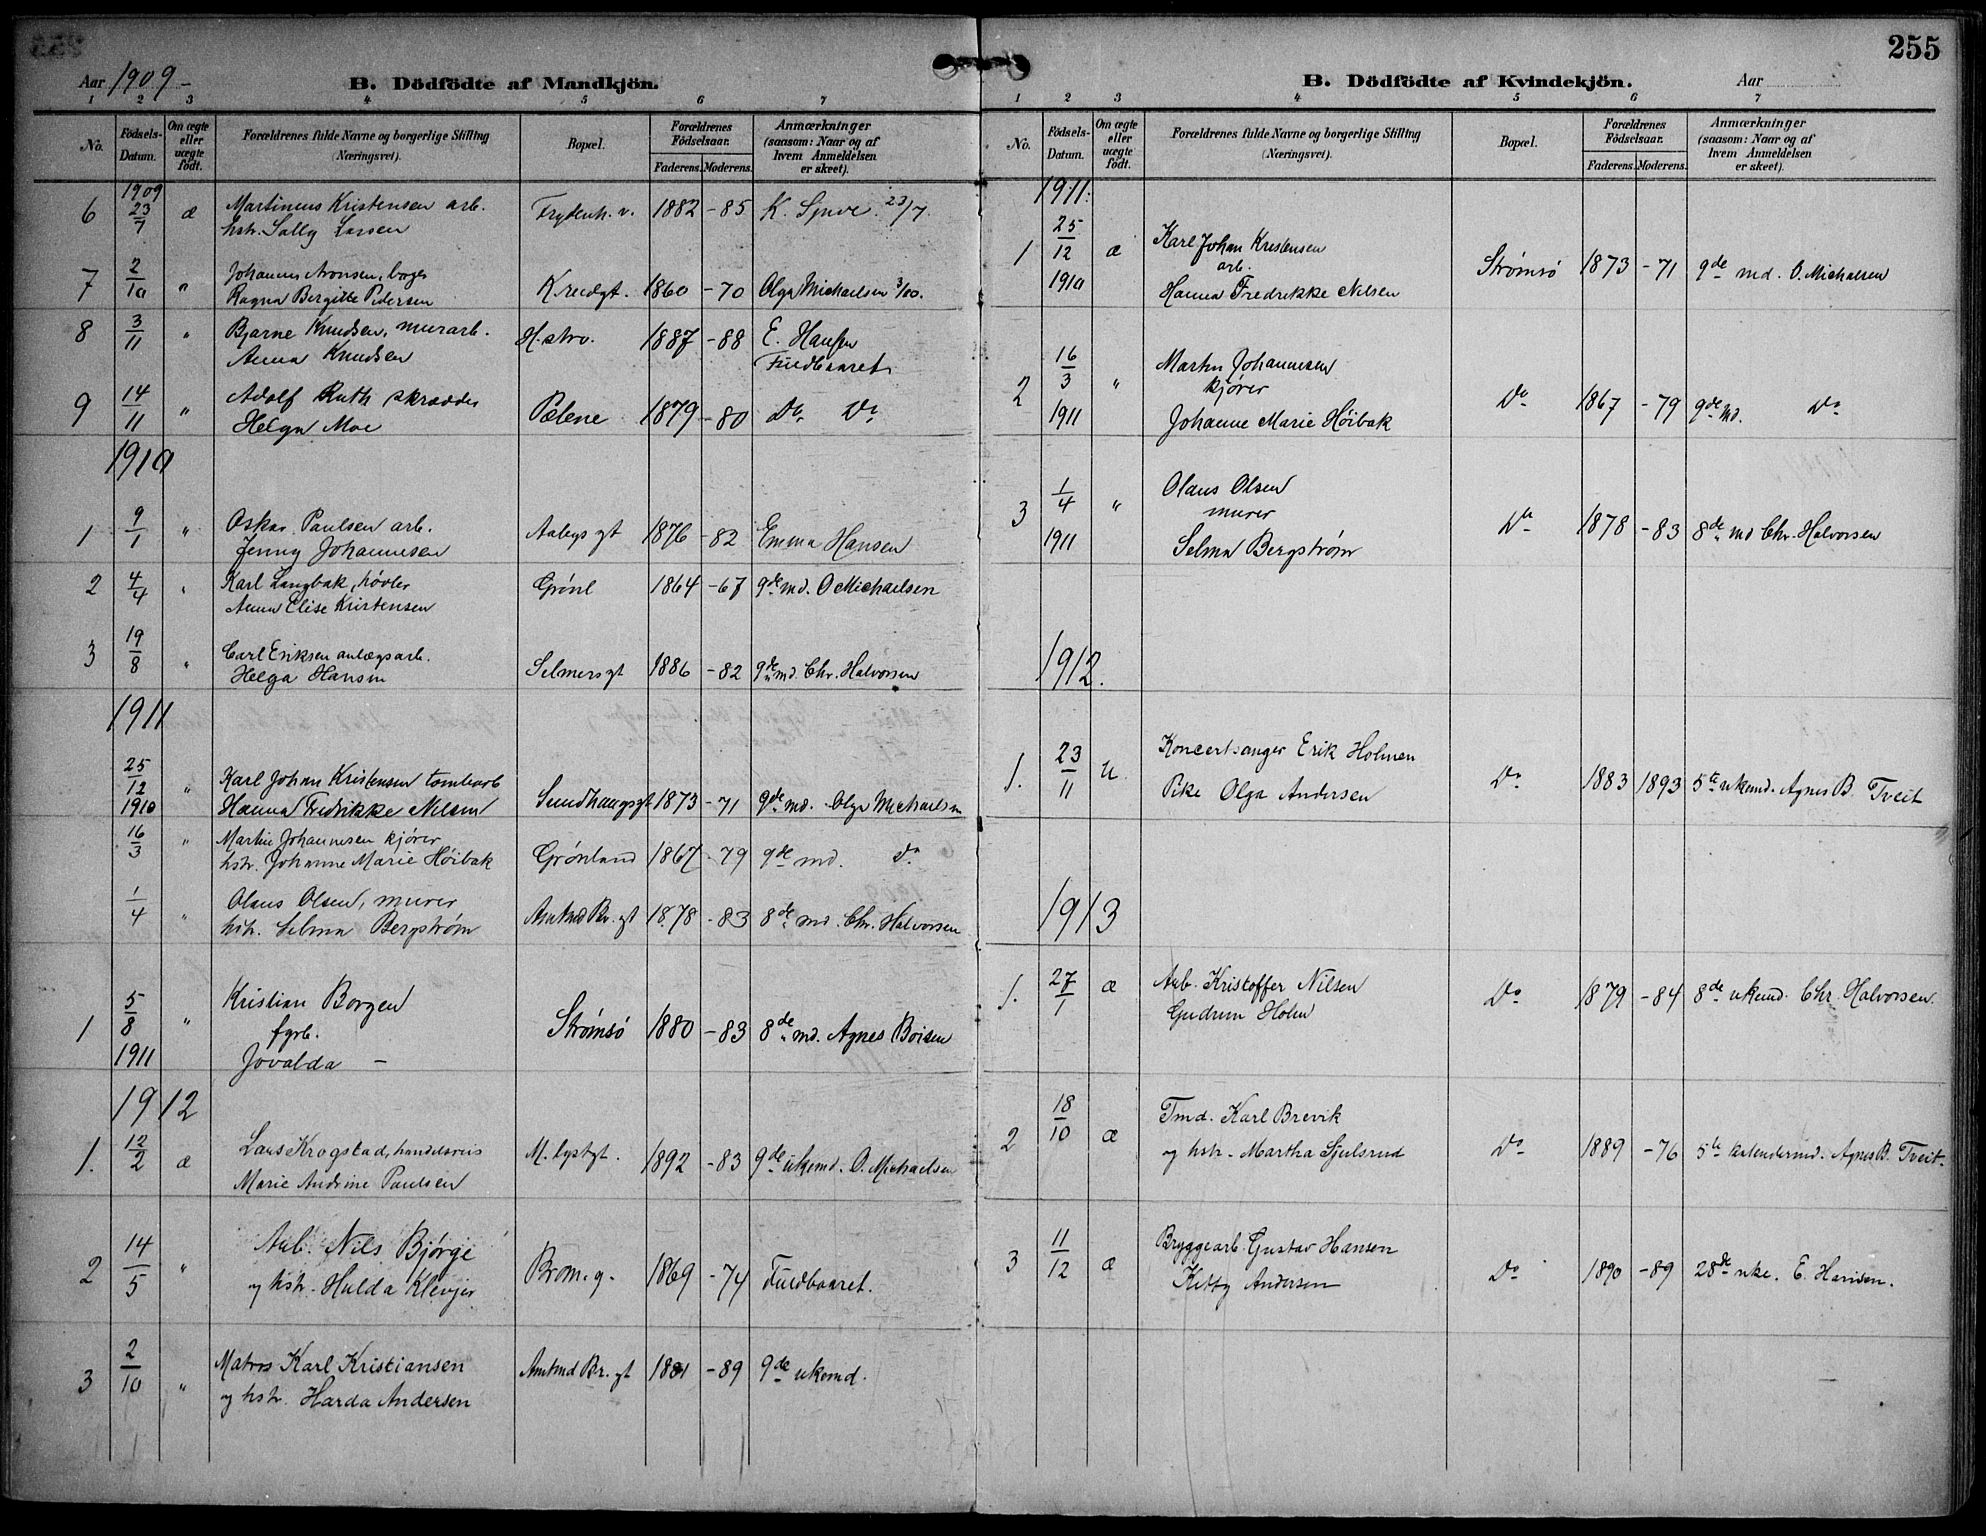 255
Aar 1909 B. Dödfödte af Mandkjön.
1 2 3 4 5 6 7
No. Födsels-Datum. Om ægte eller uægte födt. Forældrenes fulde Navne og borgerlige Stilling (Næringsvei). Bopæl. Forældrenes Födselsaar. Faderens. Moderens. Anmærkninger (saasom: Naar og af hvem Anmeldelsen er skeet).
1909
6 23/7 æ Martinius Kristensen arb. Frydenh. v. 1882 -85 K. 23/7.
hstr. Sally Larsen
7 2/10 " Johannes Aronsen, bager 1860 -70 Olga Michaelsen 3/10.
Ragna Bergitte Pedersen
8 3/11 " Bjarne Knudsen, murarb. 1887 -88 E. Hansen
Anna Knudsen Fuldbaaret
9 14/11 " Adolf Ruth skrædder Pælene 1879 -80 Do Do
Helga Moe
1910
1 9/1 " Oskar Paulsen arb. 1876 -82 Emma Hansen
Jenny Johannesen
2 4/4 " Karl Langbak, høvler Grønl 1864 -67 9de md. O Michaelsen
Anna Elise Kristensen
3 19/8 " Carl Eriksen anlægsarb. Selmersgt 1886 -82 9de md. Chr. Halvorsen
Helga Hansen
1911
25/12 1910 " Karl Johan Kristensen tomtearb Sundhaugsgt 1873 -71 9de md. Olga Michaelsen
Hanna Fredrikke Nilsen
16/3 " Martin Johannesen kjører Grønland 1867 -79 9de md. Do
hstr. Johanne Marie Høibak
1/4 " Olaus Olsen, murer Amtmd Bl. gt 1878 -83 8de md. Chr. Halvorsen
hstr. Selma Bergstrøm
1 5/8 1911 " Kristian Borgen Strømsø 1880 -83 8de md. Agnes Boisen
fgrb.
Jovalda —
1912
1. 12/2 æ Lars Krogstad, handelsreis M. lystgt. 1892 -83 9de ukemd. O. Michaelsen
Marie Andrine Paulsen
2 14/5 " Arb. Nils Bjørge Brom. g. 1869 -74 Fuldbaaret.
og hstr. Hulda Klevjer
3 2/10 " Matros Karl Kristiansen Amtmd Bl. gt 1881 -89 9de ukemd.
og hstr. Harda Andersen
B. Dödfödte af Kvindekjön. Aar
1 2 3 4 5 6 7
No. Födsels-Datum. Om ægte eller uægte födt. Forældrenes fulde Navne og borgerlige Stilling (Næringsvei). Bopæl. Forældrenes Födselsaar. Faderens. Moderens. Anmærkninger (saasom: Naar og af hvem Anmeldelsen er skeet).
1911.
1 25/12 1910 æ Karl Johan Kristensen Strømsø 1873 -71 9de md. O. Michaelsen
arb.
Hanna Fredrikke Nilsen
2 16/3 1911 " Martin Johannesen Do 1867 -79 9de md. Do
kjører
Johanne Marie Høibak
3 1/4 1911 " Olaus Olsen Do 1878 -83 8de md Chr. Halvorsen
murer
Selma Bergstrøm
1912.
1. 23/11 u. Koncertsanger Erik Holmen Do 1883 1893 5te ukemd. Agnes B. Tveit
Pike Olga Andersen
1913
1. 27/1 æ Arb. Kristoffer Nilsen Do 1879 -84 8de ukemd. Chr. Halvorsen.
Gudrun Holm
2 18/10 æ Tmd. Karl Brevik Do 1889 -76 5te kalendermd. Agnes B. Tveit.
og hstr. Martha Sjulsrud
3 11/12 æ Bryggearb. Gustav Hansen Do 1890 -89 28de uke. E. Hansen.
Kitty Andersen